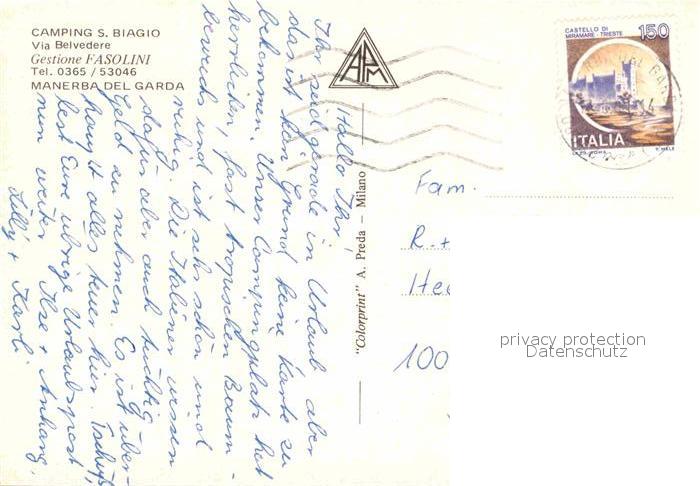 CAMPING S. BIAGIO
Via Belvedere
Gestione FASOLINI
Tel. 0365 / 53046
MANERBA DEL GARDA
Hallo Ihr,
Ihr seid gerade in Urlaub aber
das ist kein Grund keine Karte zu
bekommen. Unser Campingplatz hat
herrlichen, fast tropischen Baum-
bewuchs und ist sehr schön und
ruhig. Die Italiener wissen
dafür aber auch tüchtig
Geld zu nehmen. Es ist über-
haupt alles teuer hier. Tschüß
lest Eure übrige Urlaubspost
nun weiter Ilse + Anhang.
Lilly + Karli
"Colorprint" A. Preda — Milano
APM
CASTELLO DI
MIRAMARE - TRIESTE
150
ITALIA
Fam.
R. +
Hec
100
privacy protection
Datenschutz